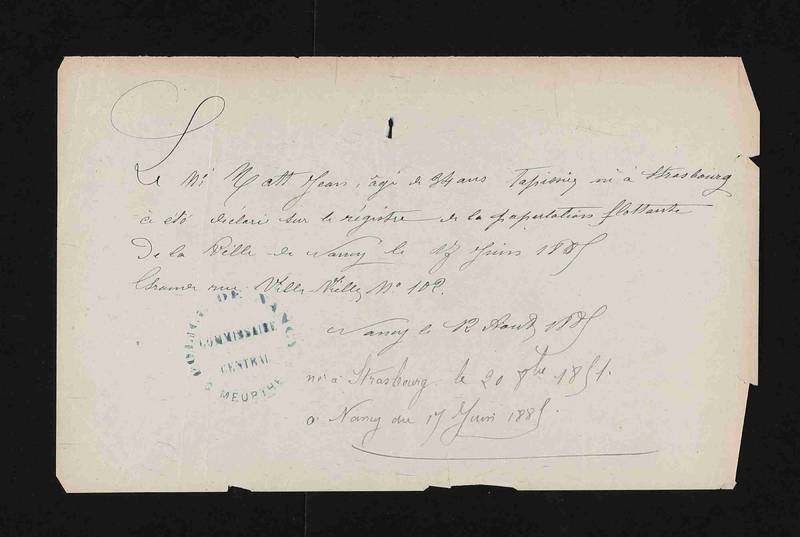 Le Mr Matt Jean, âgé de 34 ans Tapissier né à Strasbourg
a été déclaré sur le régistre de la population flottante
De la Ville de Nancy le 17 Juin 1885
rue Ville Vieille No 102.
Nancy le 12 Aout 1885
né à Strasbourg le 20 8bre 1851.
a Nancy du 17 Juin 1885.
POLICE DE NANCY
COMMISSAIRE
CENTRAL
MEURTHE